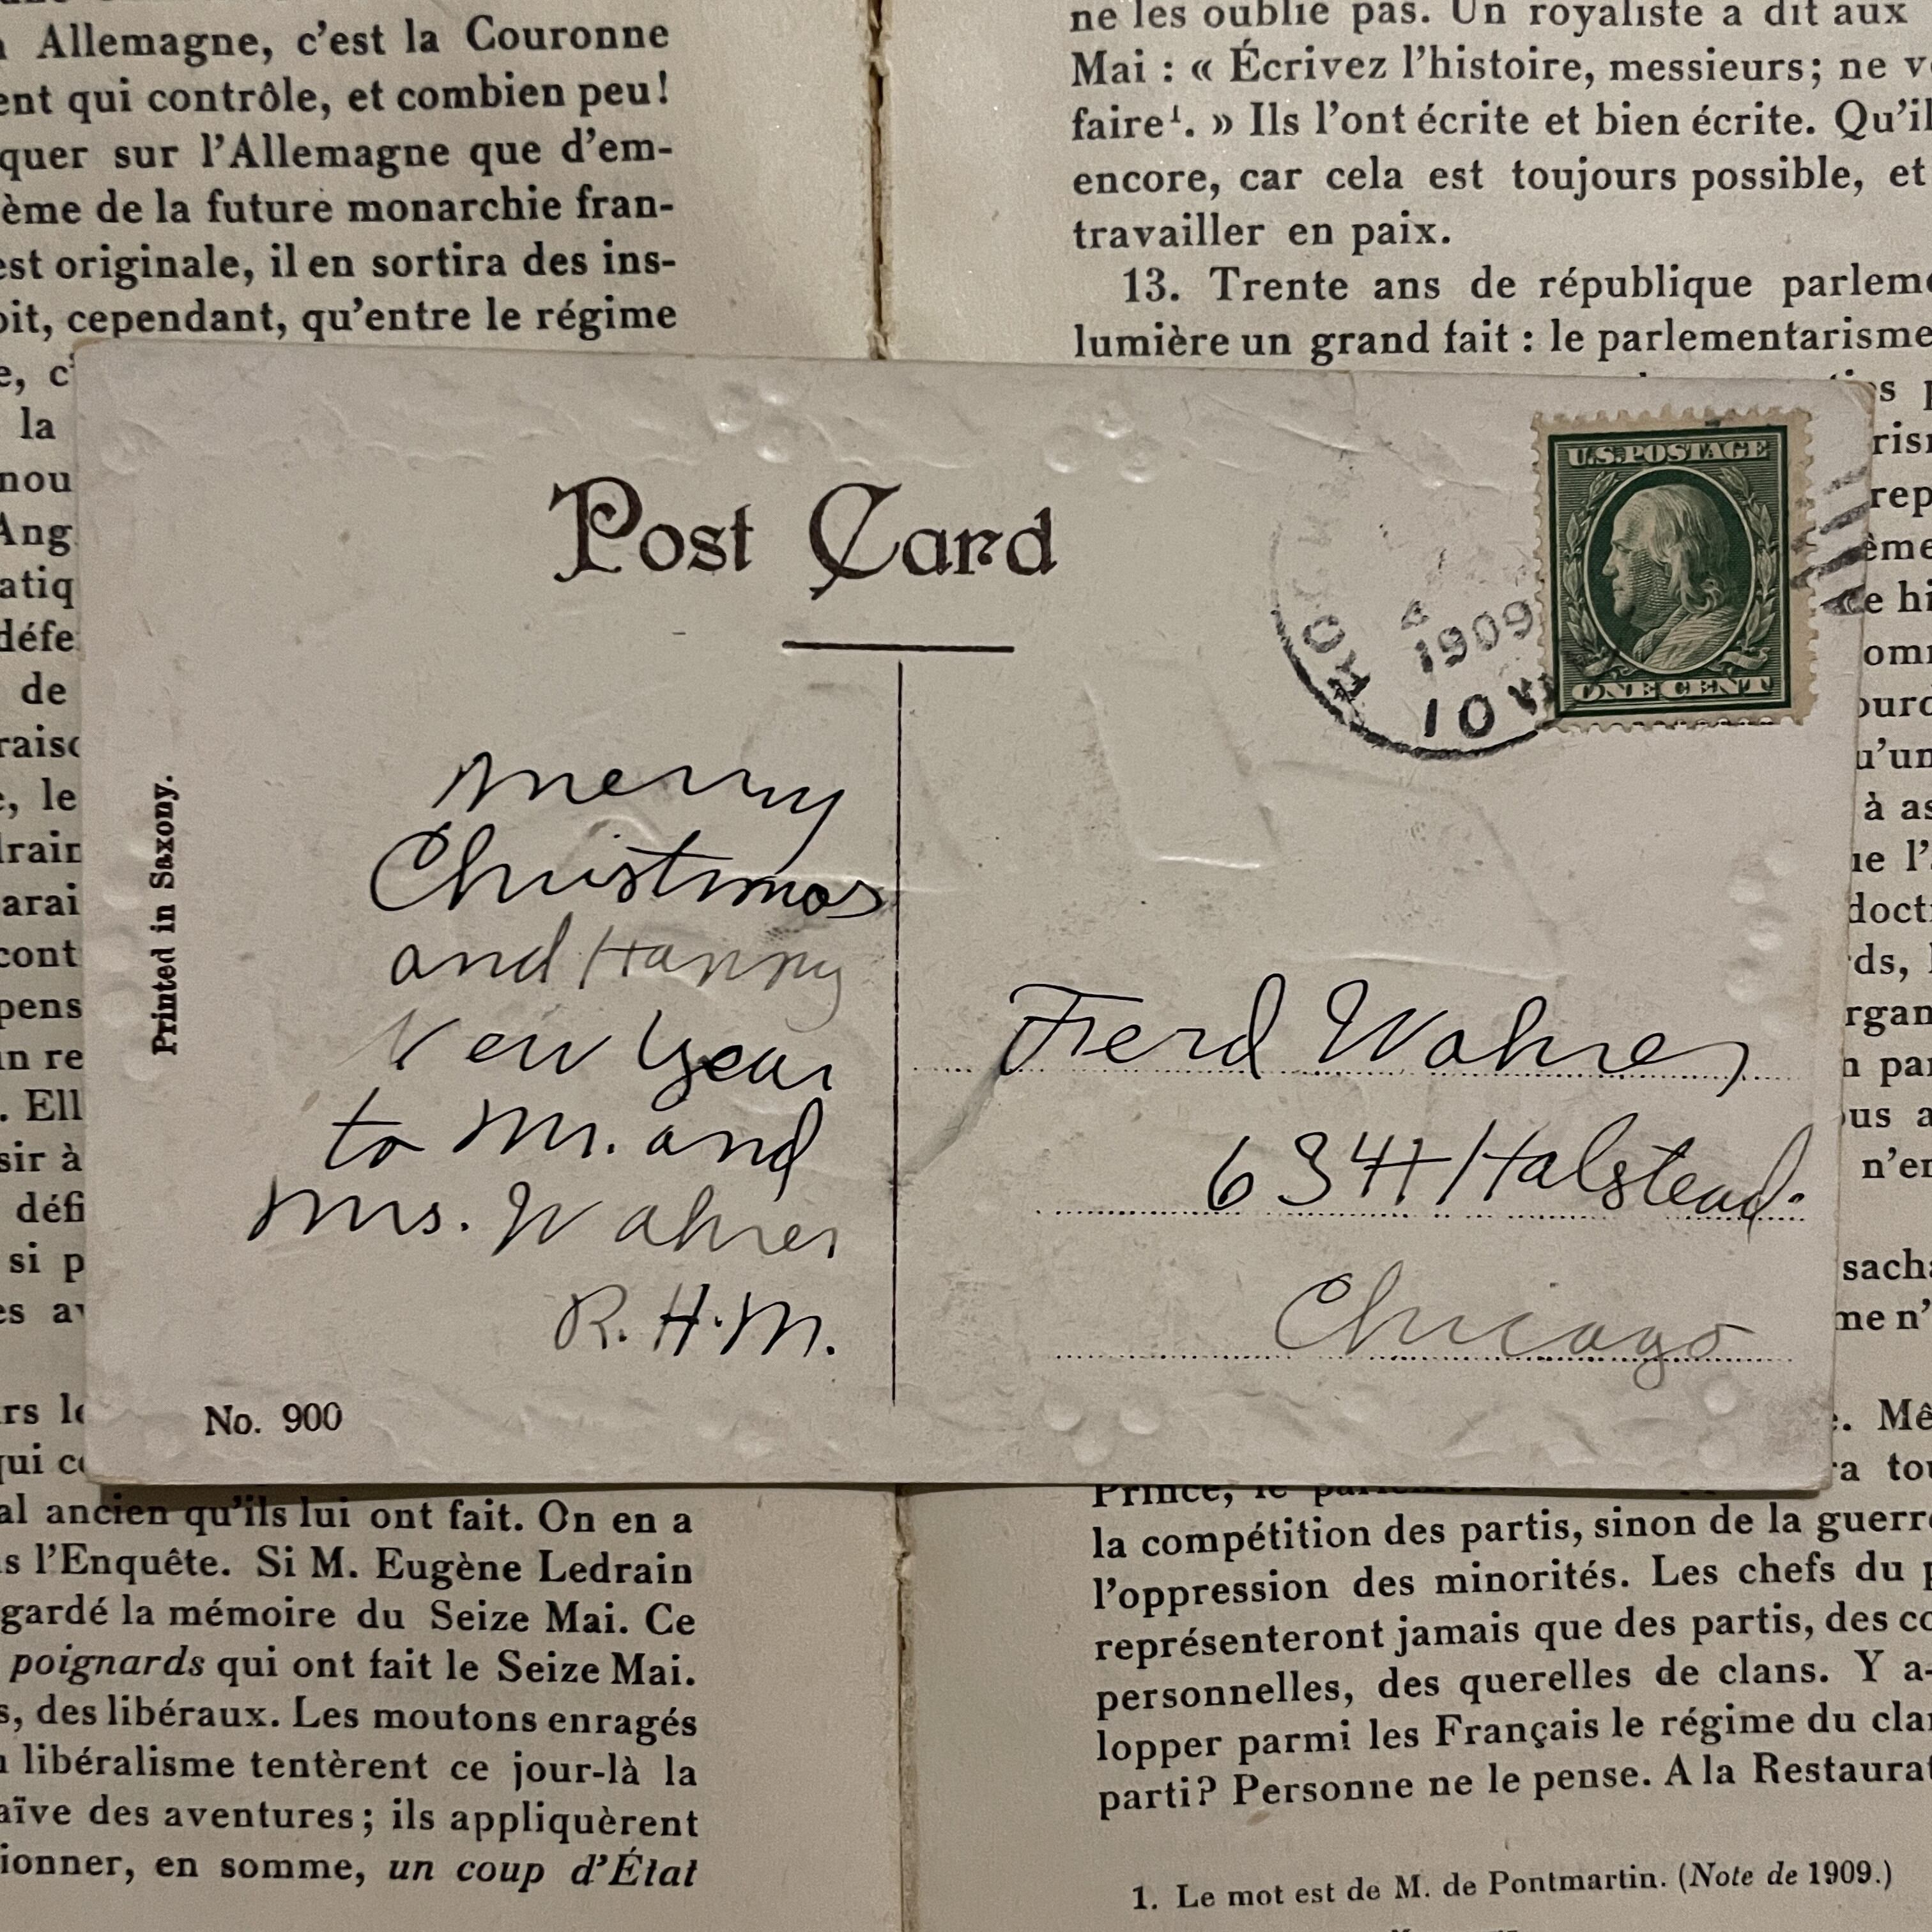 Allemagne, c'est la Couronne
ent qui contrôle, et combien peu!
quer sur l'Allemagne que d'em-
ème de la future monarchie fran-
est originale, il en sortira des ins-
oit, cependant, qu'entre le régime
e, c'
la
nou
Ang
atiq
défe
de
raiso
e, le
drain
arai
cont
pens
un re
. Ell
sir à
défi
si p
es av
rs le
qui co
al ancien qu'ils lui ont fait. On en a
s l'Enquête. Si M. Eugène Ledrain
gardé la mémoire du Seize Mai. Ce
poignards qui ont fait le Seize Mai.
s, des libéraux. Les moutons enragés
u libéralisme tentèrent ce jour-là la
aïve des aventures; ils appliquèrent
ionner, en somme, un coup d'État
ne les oublie pas. Un royaliste a dit aux
Mai : « Écrivez l'histoire, messieurs; ne v
faire¹. » Ils l'ont écrite et bien écrite. Qu'il
encore, car cela est toujours possible, et
travailler en paix.
13. Trente ans de république parleme
lumière un grand fait : le parlementarisme
s p
rism
rep
ème
e hi
omm
ourd
u'un
à as
ue l'
doct
rds, l
rgan
n par
ous a
n'en
sacha
me n'
e. Mê
ra tou
Prince, le
la compétition des partis, sinon de la guerre
l'oppression des minorités. Les chefs du p
représenteront jamais que des partis, des co
personnelles, des querelles de clans. Y a-
lopper parmi les Français le régime du clan
parti? Personne ne le pense. A la Restaurat
1. Le mot est de M. de Pontmartin. (Note de 1909.)
Post Card
U.S. POSTAGE
ONE CENT
1909
IOWA
Printed in Saxony.
Merry
Christmas
and Happy
New Year
to Mr. and
Mrs. Wahrer
R. H. M.
No. 900
Ferd Wahrer
6344 Halstead.
Chicago